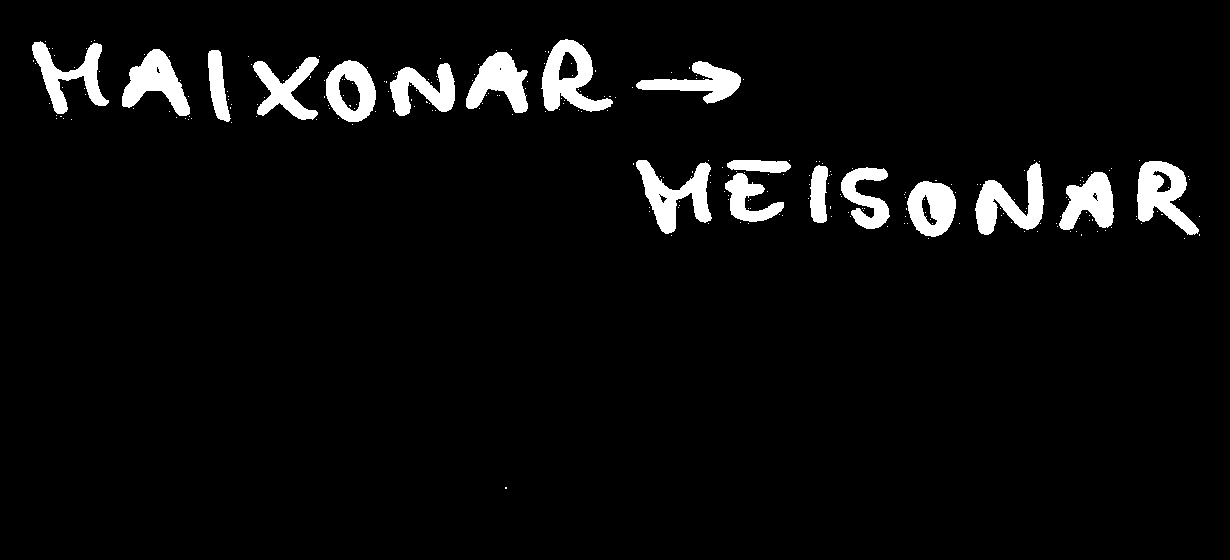 MAIXONAR →
MEISONAR